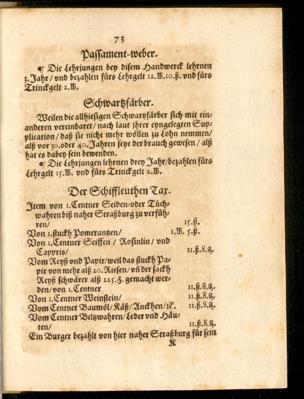 73
Passament-weber.
¶ Die Lehrjungen bey disem Handwerck lehrnen
3. Jahr/ und bezahlen fürs Lehrgelt 12. ℔. 10. ß. und fürs
Trinckgelt 2. ℔.
Schwartzfärber.
Weilen die allhiesigen Schwartzfärber sich mit ein-
anderen vereinbaret/ nach laut ihrer eyngelegten Sup-
plication/ daß sie nicht mehr wöllen zu Lohn nemmen/
alß vor 30. oder 40. Jahren seye der brauch gewesen/ alß
hat es dabey sein bewenden.
¶ Die Lehrjungen lehrnen drey Jahr/ bezahlen fürs
Lehrgelt 15. ℔. und fürs Trinckgelt 2. ℔.
Der Schiffleuthen Tax.
Item von 1. Centner Seiden- oder Tüch-
wahren biß naher Straßburg zu verfüh-
ren/ 15. ß.
Von 1. stuckh Pomerantzen/ 1. ℔. 5. ß.
Von 1. Centner Seiffen/ Rosinlin/ und
Cappris/ 11. ß. 8. ₰.
Vom Reyß und Papir/ weil das stuckh Pa-
pir von mehr alß 20. Riesen/ uñ der sackh
Reyß schwärer alß 225. ℔. gemacht wer-
den/ von 1. Centner 11. ß. 8. ₰.
Von 1. Centner Weinstein/ 11. ß. 8. ₰.
Vom Centner Baumöl/ Käß/ Anckhen/ ꝛc. 11. ß. 8. ₰.
Vom Centner Beltzwahren/ Leder und Häu-
ten/ 11. ß. 8. ₰.
Ein Burger bezahlt von hier naher Straßburg für sein
K